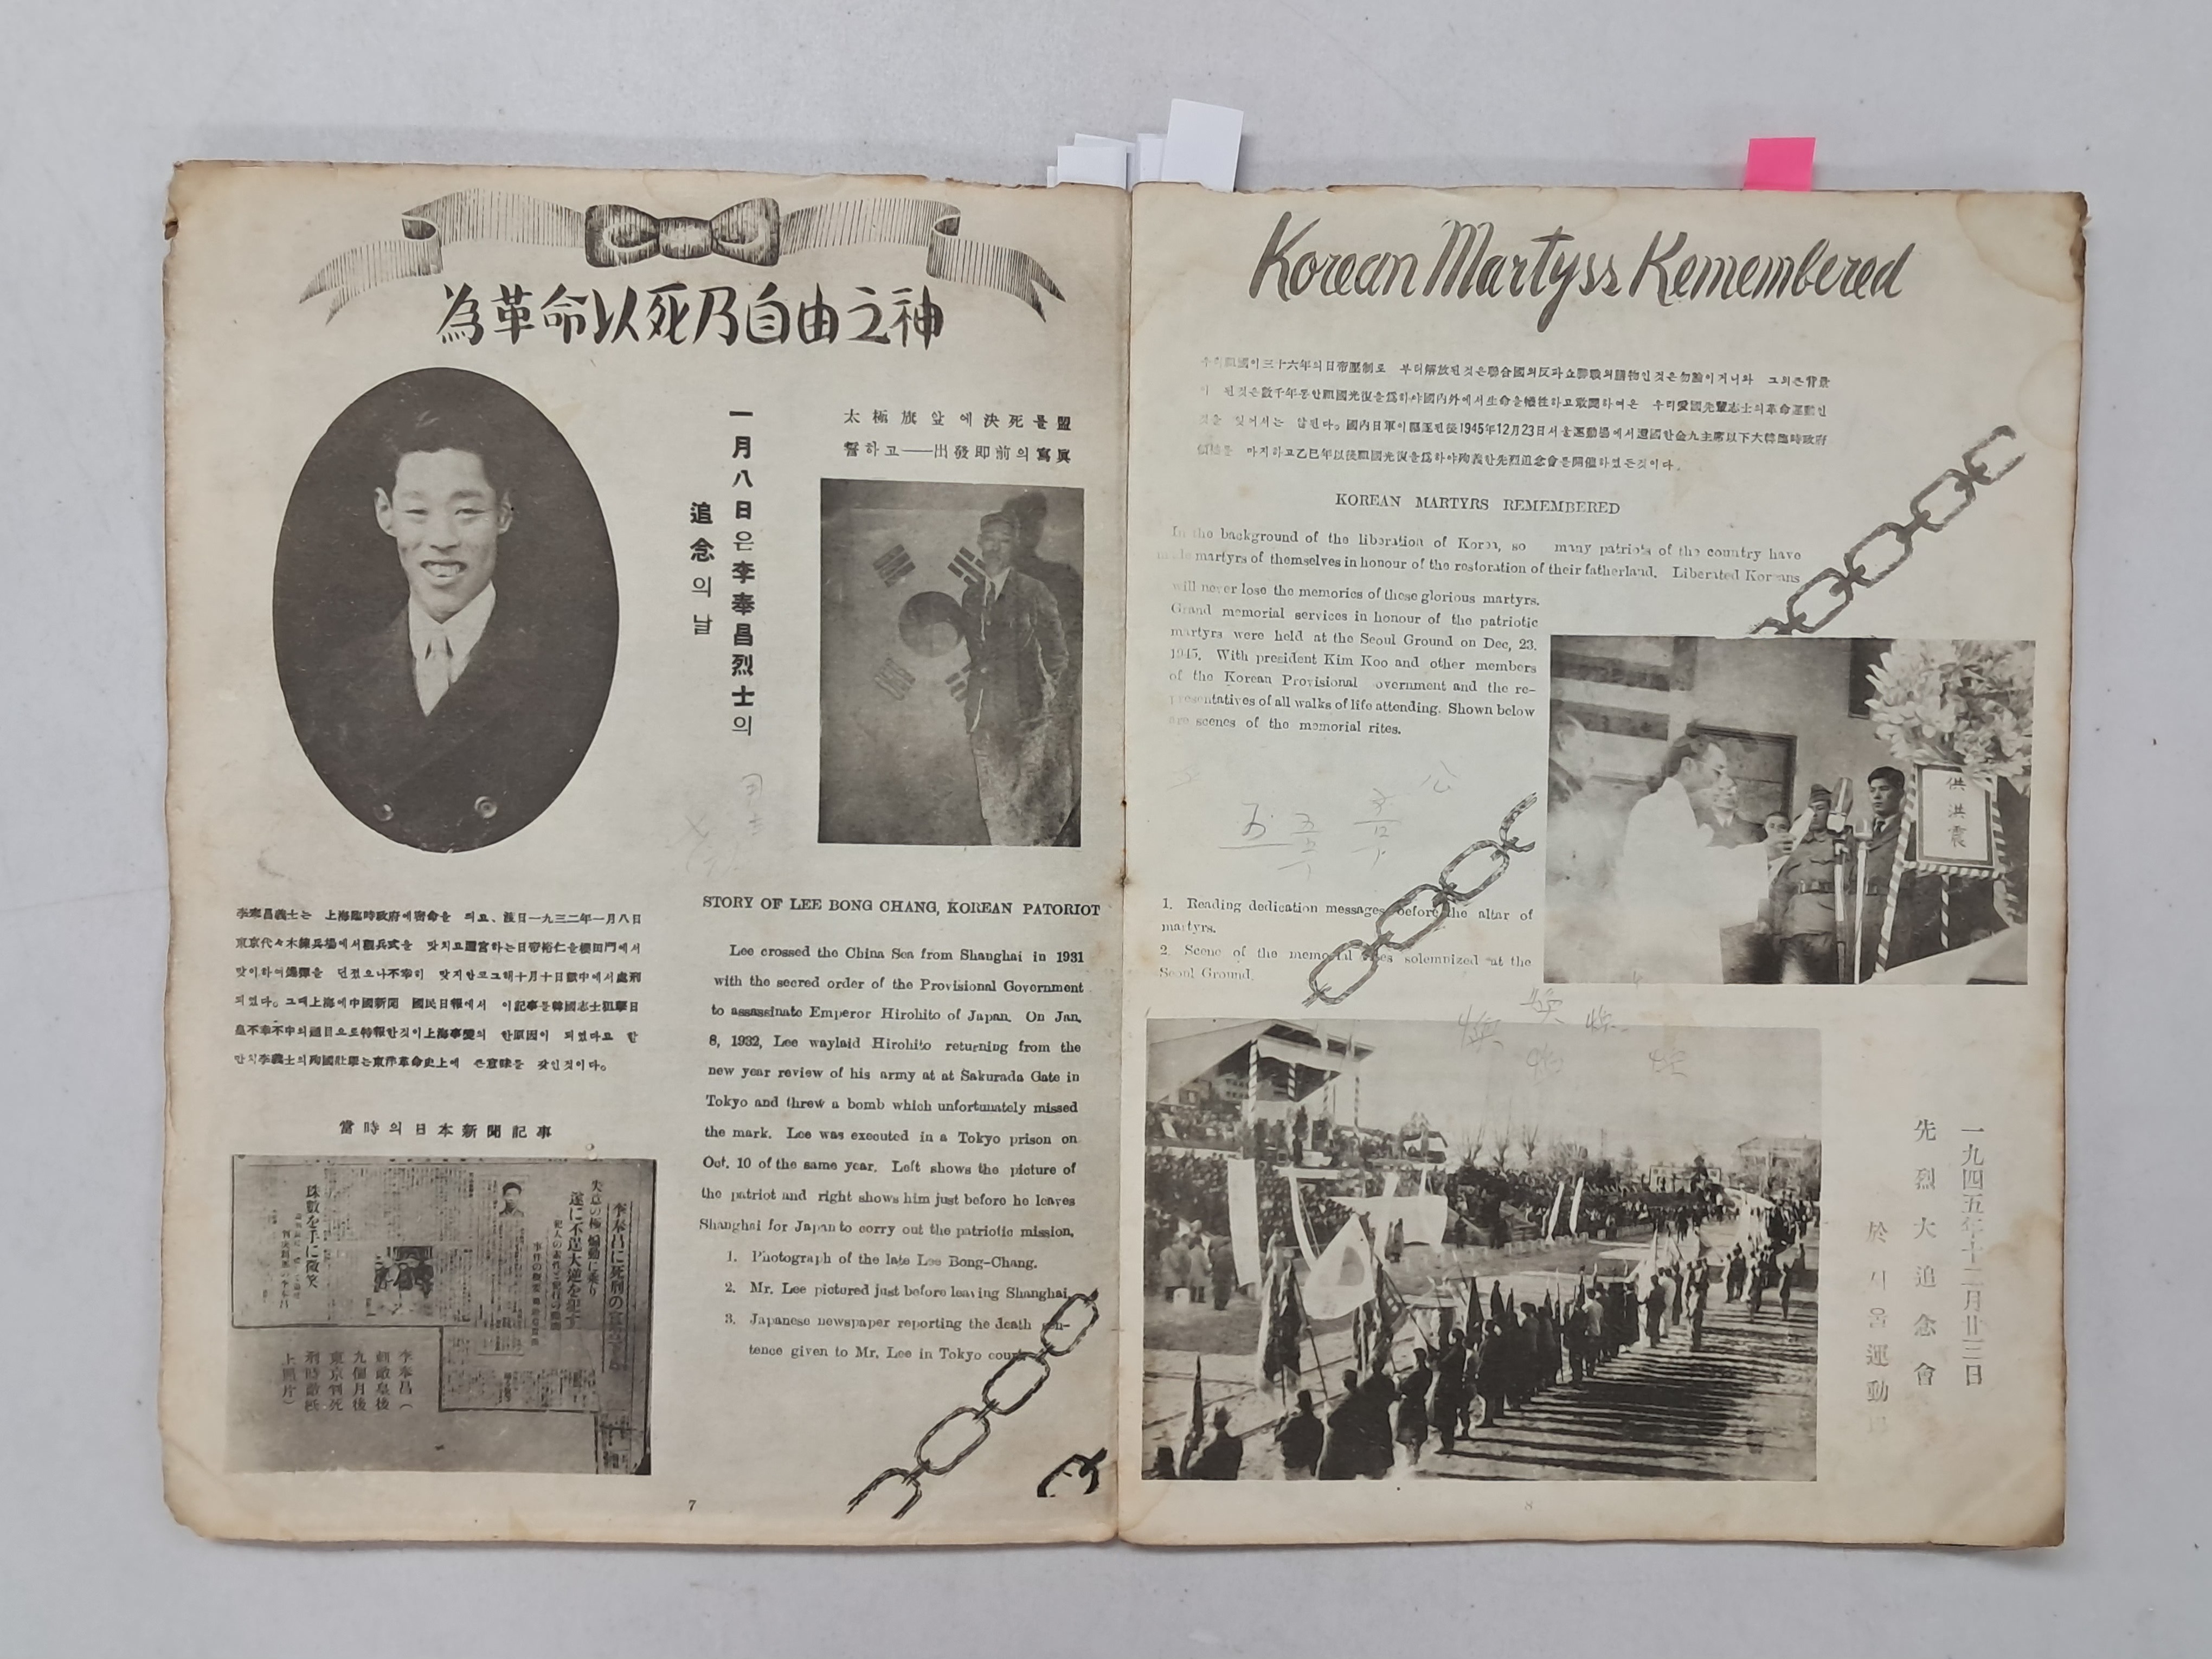 為革命以死乃自由之神
一月八日은李奉昌烈士의
追念의날
太極旗앞에決死를盟
誓하고——出發即前의寫眞
李奉昌義士는 上海臨時政府에密命을 띄고、該日一九三二年一月八日
東京代々木練兵場에서觀兵式을 맞치고還宮하는日帝裕仁을櫻田門에서
맞이하여爆彈을 던젔으나不幸히 맞지안코그해十月十日獄中에서處刑
되였다。그때上海에中國新聞 國民日報에서 이記事를韓國志士狙擊日
皇不幸不中의題目으로特報한것이上海事變의 한原因이 되였다고 한
만치李義士의殉國壯擧는東洋革命史上에 큰意味를 갖인것이다。
當時의日本新聞記事
李奉昌に死刑の
失意の極 煽動に乘り
遂に不逞大逆を犯す
珠數を手に微笑
李奉昌(
刺敵皇後
九個月後
東京判死
刑時敵紙
上照片)
STORY OF LEE BONG CHANG, KOREAN PATORIOT
Lee crossed the China Sea from Shanghai in 1931
with the secred order of the Provisional Government
to assassinate Emperor Hirohito of Japan. On Jan.
8, 1932, Lee waylaid Hirohito returning from the
new year review of his army at at Sakurada Gate in
Tokyo and threw a bomb which unfortunately missed
the mark. Lee was executed in a Tokyo prison on
Out. 10 of the same year. Left shows the picture of
the patriot and right shows him just before he leaves
Shanghai for Japan to corry out the patriotic mission.
1. Photograph of the late Lee Bong-Chang.
2. Mr. Lee pictured just before leaving Shanghai.
3. Japanese newspaper reporting the death sen-
tence given to Mr. Lee in Tokyo court.
7
Korean Martyss Remembered
우리祖國이三十六年의日帝壓制로 부터解放된것은聯合國의反파쇼聯戰의膳物인것은勿論이거니와 그의큰背景
이 된것은數千年동안祖國光復을爲하야國內外에서生命을犧牲하고敢鬪하여온 우리愛國先輩志士의革命運動인
것을 잊어서는 않된다。國內日軍이驅逐된後1945年12月23日서울運動場에서還國한金九主席以下大韓臨時政府
마지하고乙巳年以後祖國光復을爲하야殉義한先烈追念會를開催하였든것이다。
KOREAN MARTYRS REMEMBERED
In the background of the liberation of Korea, so many patriots of the country have
made martyrs of themselves in honour of the restoration of their fatherland. Liberated Koreans
will never lose the memories of these glorious martyrs.
Grand memorial services in honour of the patriotic
martyrs were held at the Seoul Ground on Dec, 23.
1945. With president Kim Koo and other members
of the Korean Provisional overnment and the re-
presentatives of all walks of life attending. Shown below
are scenes of the memorial rites.
1. Reading dedication messages before the altar of
martyrs.
2. Scene of the memorial rites solemnized at the
Seoul Ground.
供洪震
一九四五年十二月廿三日
先烈大追念會
於서울運動場
8